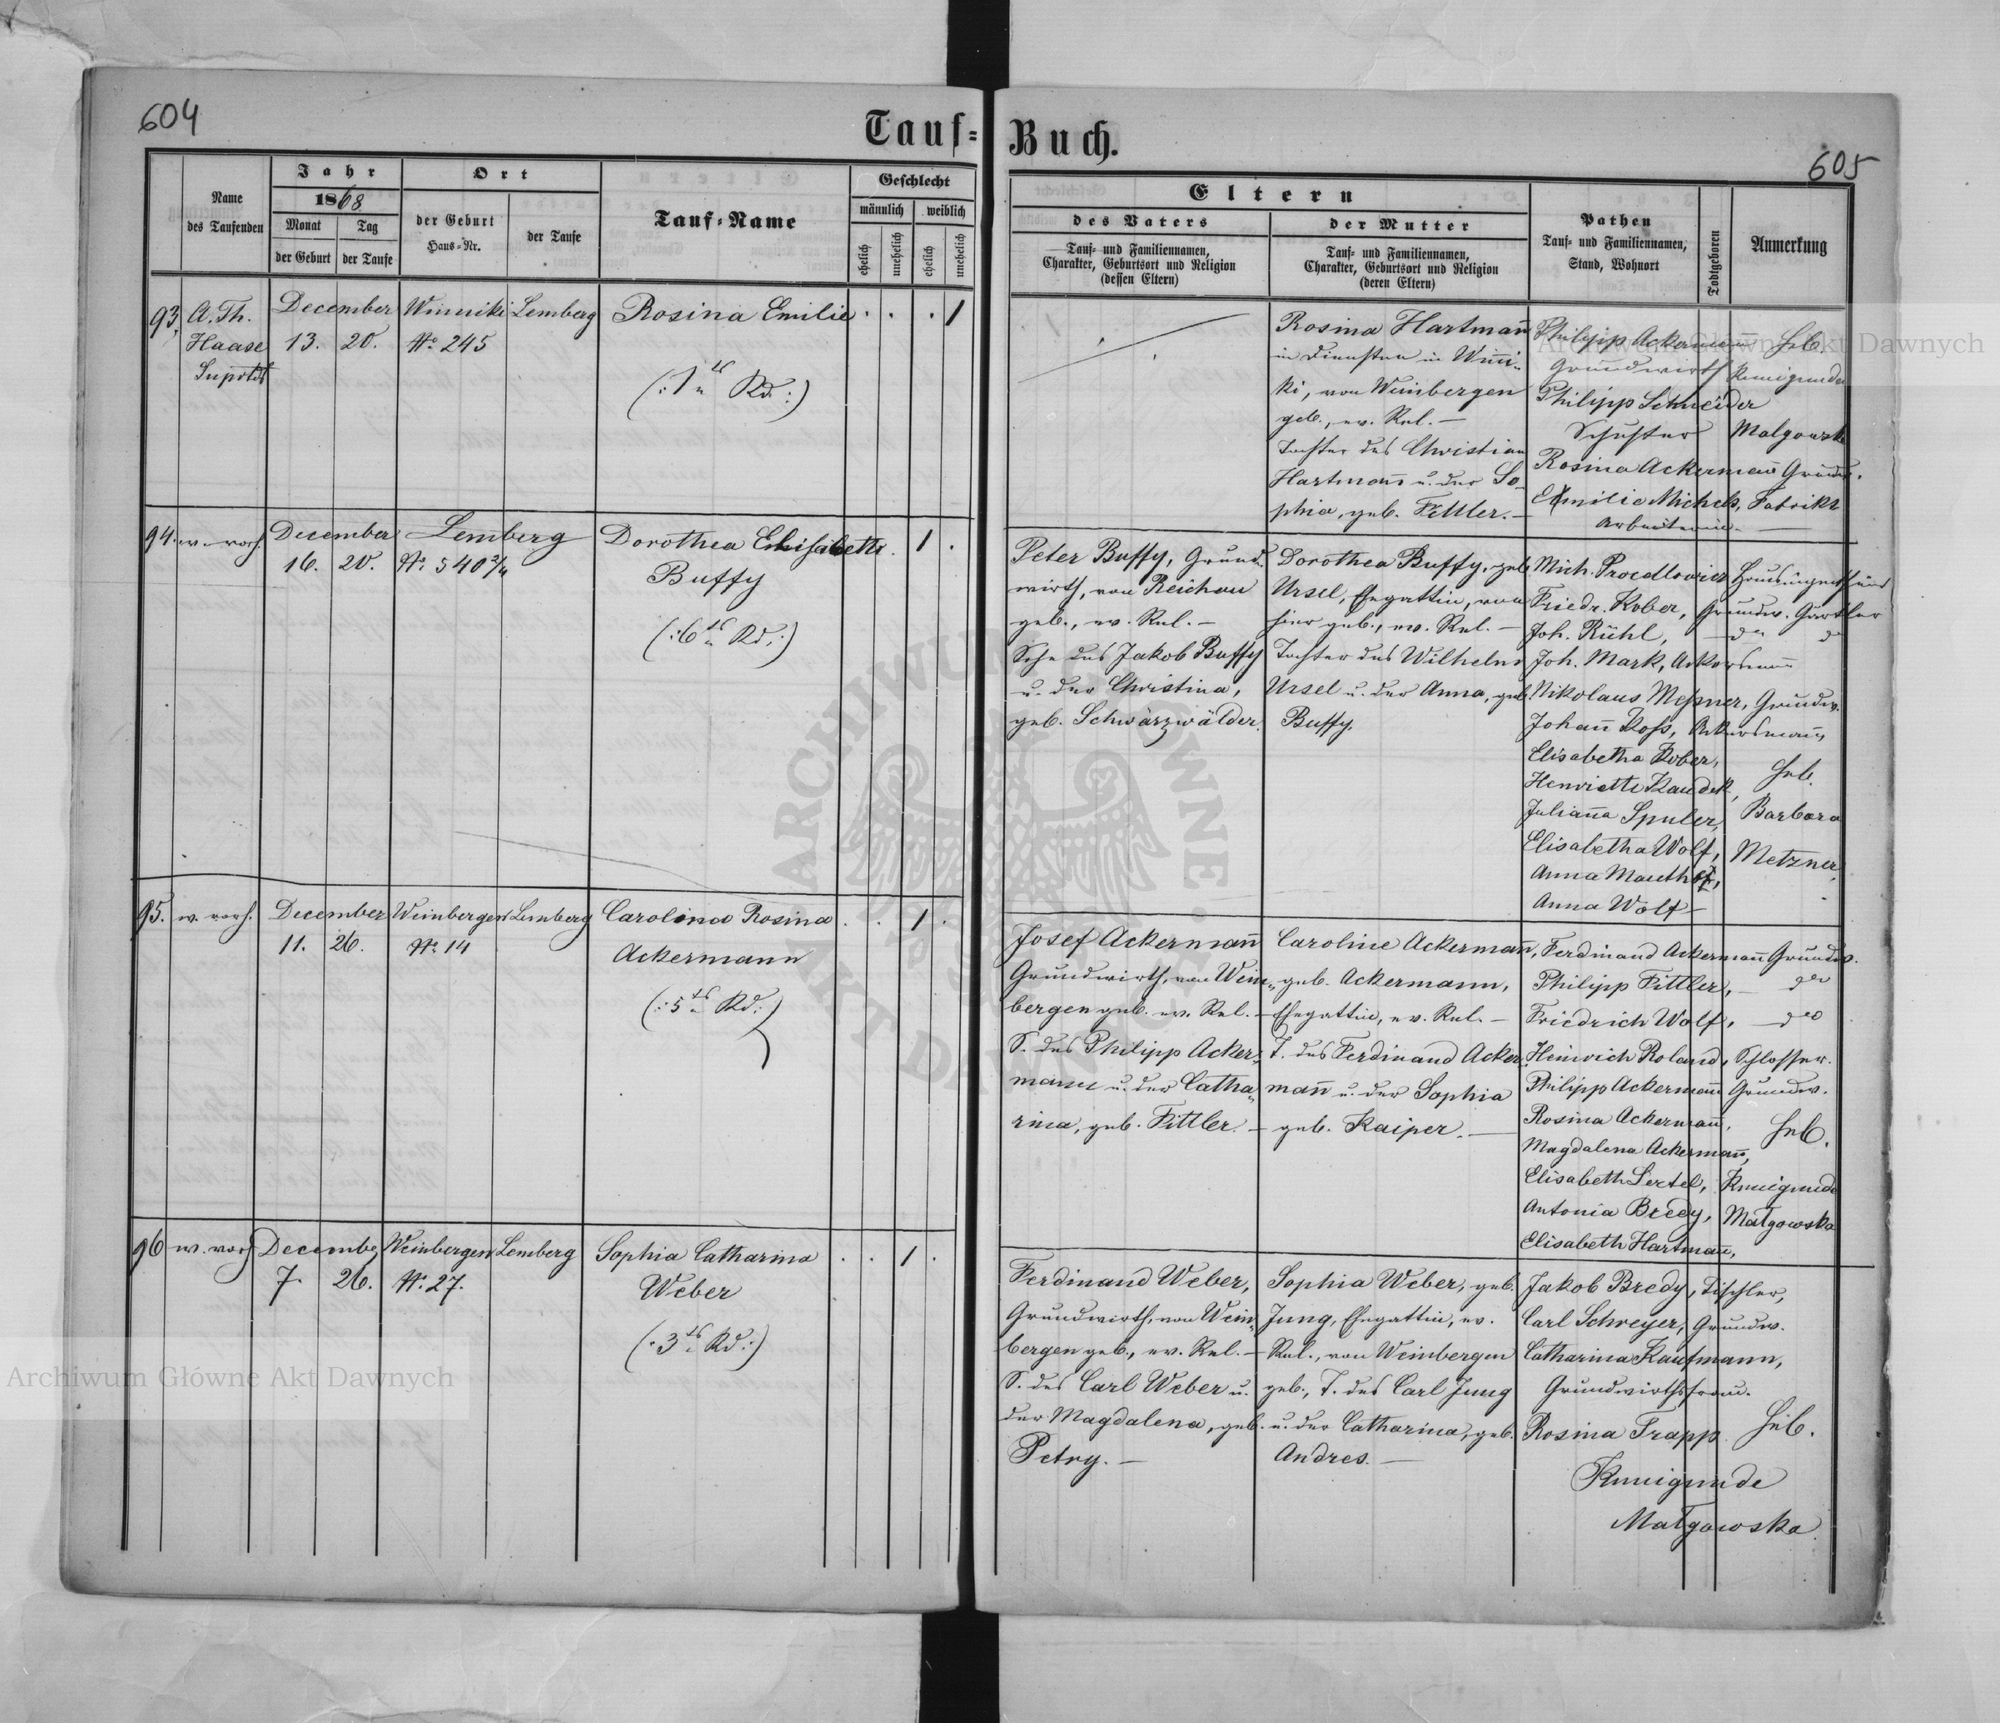 604
Tauf=
Buch.
605
Name
des Taufenden
Jahr
1868
Monat
Tag
der Geburt
der Taufe
Ort
der Geburt
Haus=Nr.
der Taufe
Tauf=Name
Geschlecht
männlich
weiblich
ehelich
unehelich
ehelich
unehelich
Eltern
des Vaters
Tauf= und Familiennamen,
Charakter, Geburtsort und Religion
(dessen Eltern)
der Mutter
Tauf= und Familiennamen,
Charakter, Geburtsort und Religion
(deren Eltern)
Pathen
Tauf= und Familiennamen,
Stand, Wohnort
Todtgeboren
Anmerkung
93.
A. Th.
Haase
Suprdt
December
13. 20.
Winniki
No. 245
Lemberg
Rosina Emilie
(: 1tes Kd. :)
1
Rosina Hartmañ
in Diensten in Wiñi=
ki, von Weinbergen
geb., ev. Rel. —
Tochter des Christian
Hartmañ u. der So=
phia, geb. Fittler. —
Philipp Ackermañ
Grundwirth
Philipp Schneider
Schuster
Rosina Ackermañ Grundw.
Emilie Michels, Fabriks
Arbeiterin. —
Heb.
Kunigunde
Malgowska
94.
w. vorh.
December
16. 20.
Lemberg
No. 540 2/4
Dorothea Elisabeth
Buffy
(: 6tes Kd. :)
1
Peter Buffy, Grund=
wirth, von Reichau
geb., ev. Rel. —
Sohn des Jakob Buffy
u. der Christina,
geb. Schwarzwälder.
Dorothea Buffy, geb.
Ursel, Ehegattin, von
hier geb., ev. Rel. —
Tochter des Wilhelm
Ursel u. der Anna, geb.
Buffy.
Mich.
Friedr. Kober, Grundw.
Joh. Rühl, — do
Joh. Mark, Ackersmañ
Nikolaus Meßner, Grundw.
Johañ Koß, Ackersmañ,
Elisabetha Kober,
Henriette
Juliañа Spuler,
Elisabetha Wolf,
Anna
Anna Wolf —
Heb.
Barbara
Metzner.
95.
w. vorh.
December
11. 26.
Weinbergen
No. 14
Lemberg
Carolina Rosina
Ackermann
(: 5tes Kd. :)
1
Josef Ackermañ
Grundwirth, von Wein=
bergen geb. ev. Rel. —
S. des Philipp Acker=
mann u. der Catha=
rina, geb. Fittler. —
Caroline Ackermañ,
geb. Ackermann,
Ehegattin, ev. Rel. —
T. des Ferdinand Acker=
mañ u. der Sophia
geb. Kaiper. —
Ferdinand Ackermañ Grundw.
Philipp Fittler, — do
Friedrich Wolf, — do
Heinrich Roland, Schlosser.
Philipp Ackermañ Grundw.
Rosina Ackermañ,
Magdalena Ackermañ,
Elisabeth Sertel,
Antonia Bredy,
Elisabeth Hartmañ,
Heb.
Kunigunde
Małgowska
96
w. vorh.
December
7. 26.
Weinbergen
No. 27.
Lemberg
Sophia Catharina
Weber
(: 3tes Kd. :)
1
Ferdinand Weber,
Grundwirth, von Wein=
bergen geb., ev. Rel. —
S. des Carl Weber u.
der Magdalena, geb.
Petry. —
Sophia Weber, geb.
Jung, Ehegattin, ev.
Rel., von Weinbergen
geb., T. des Carl Jung
u. der Catharina, geb.
Andres. —
Jakob Bredy, Tischler,
Carl Schreyer, Grundw.
Catharina Kaufmann,
Grundwirthsfrau.
Rosina Trapp
Heb.
Kunigunde
Małgowska.
Archiwum Główne Akt Dawnych
Archiwum Główne Akt Dawnych